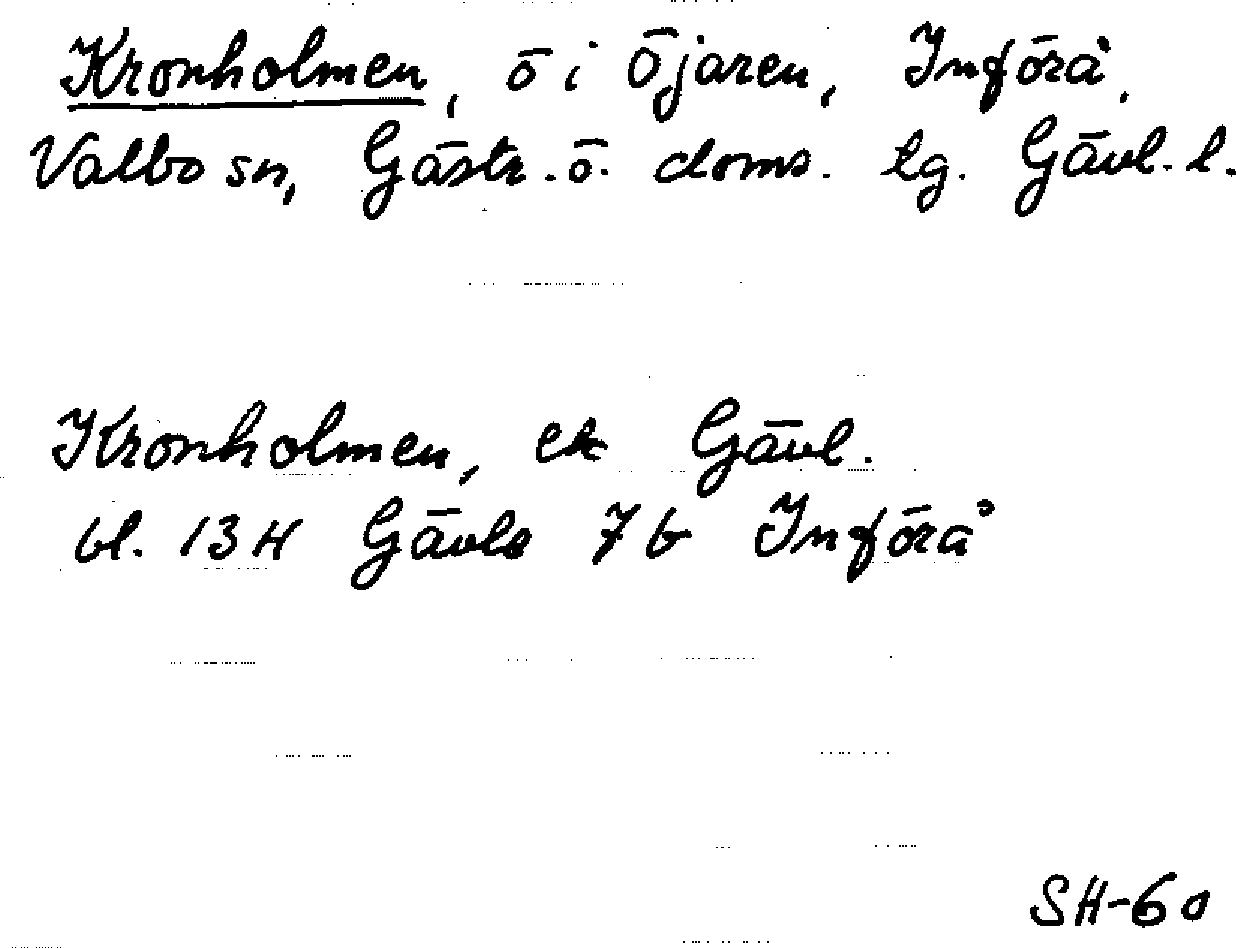 Kronholmen, ö i Öjaren, Införå,
Valbo sn, Gästr. ö. doms. tg. Gävl. l.
Kronholmen, ek Gävl.
bl. 13H Gävle 7b Införå
SH-60